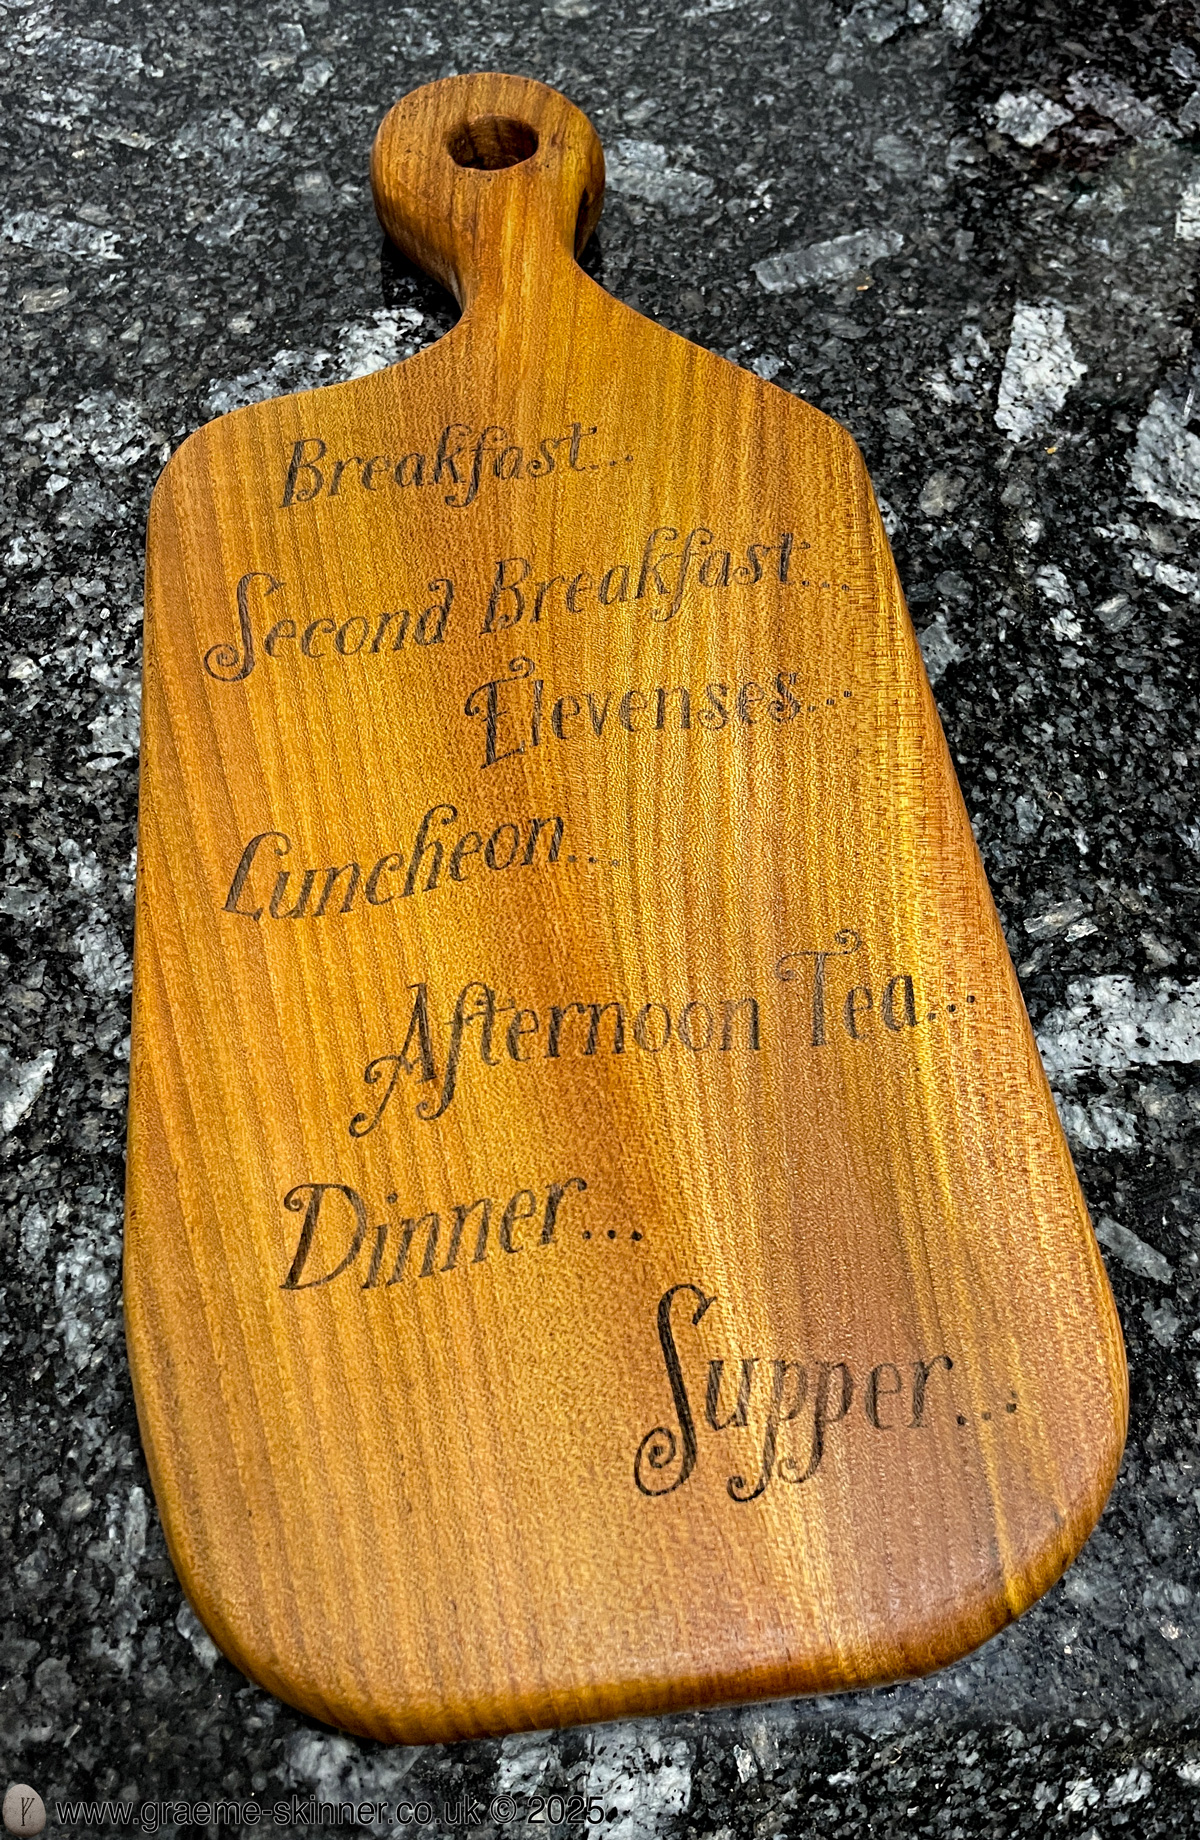 Breakfast...
Second Breakfast...
Elevenses...
Luncheon...
Afternoon Tea...
Dinner...
Supper...
www.graeme-skinner.co.uk © 2025